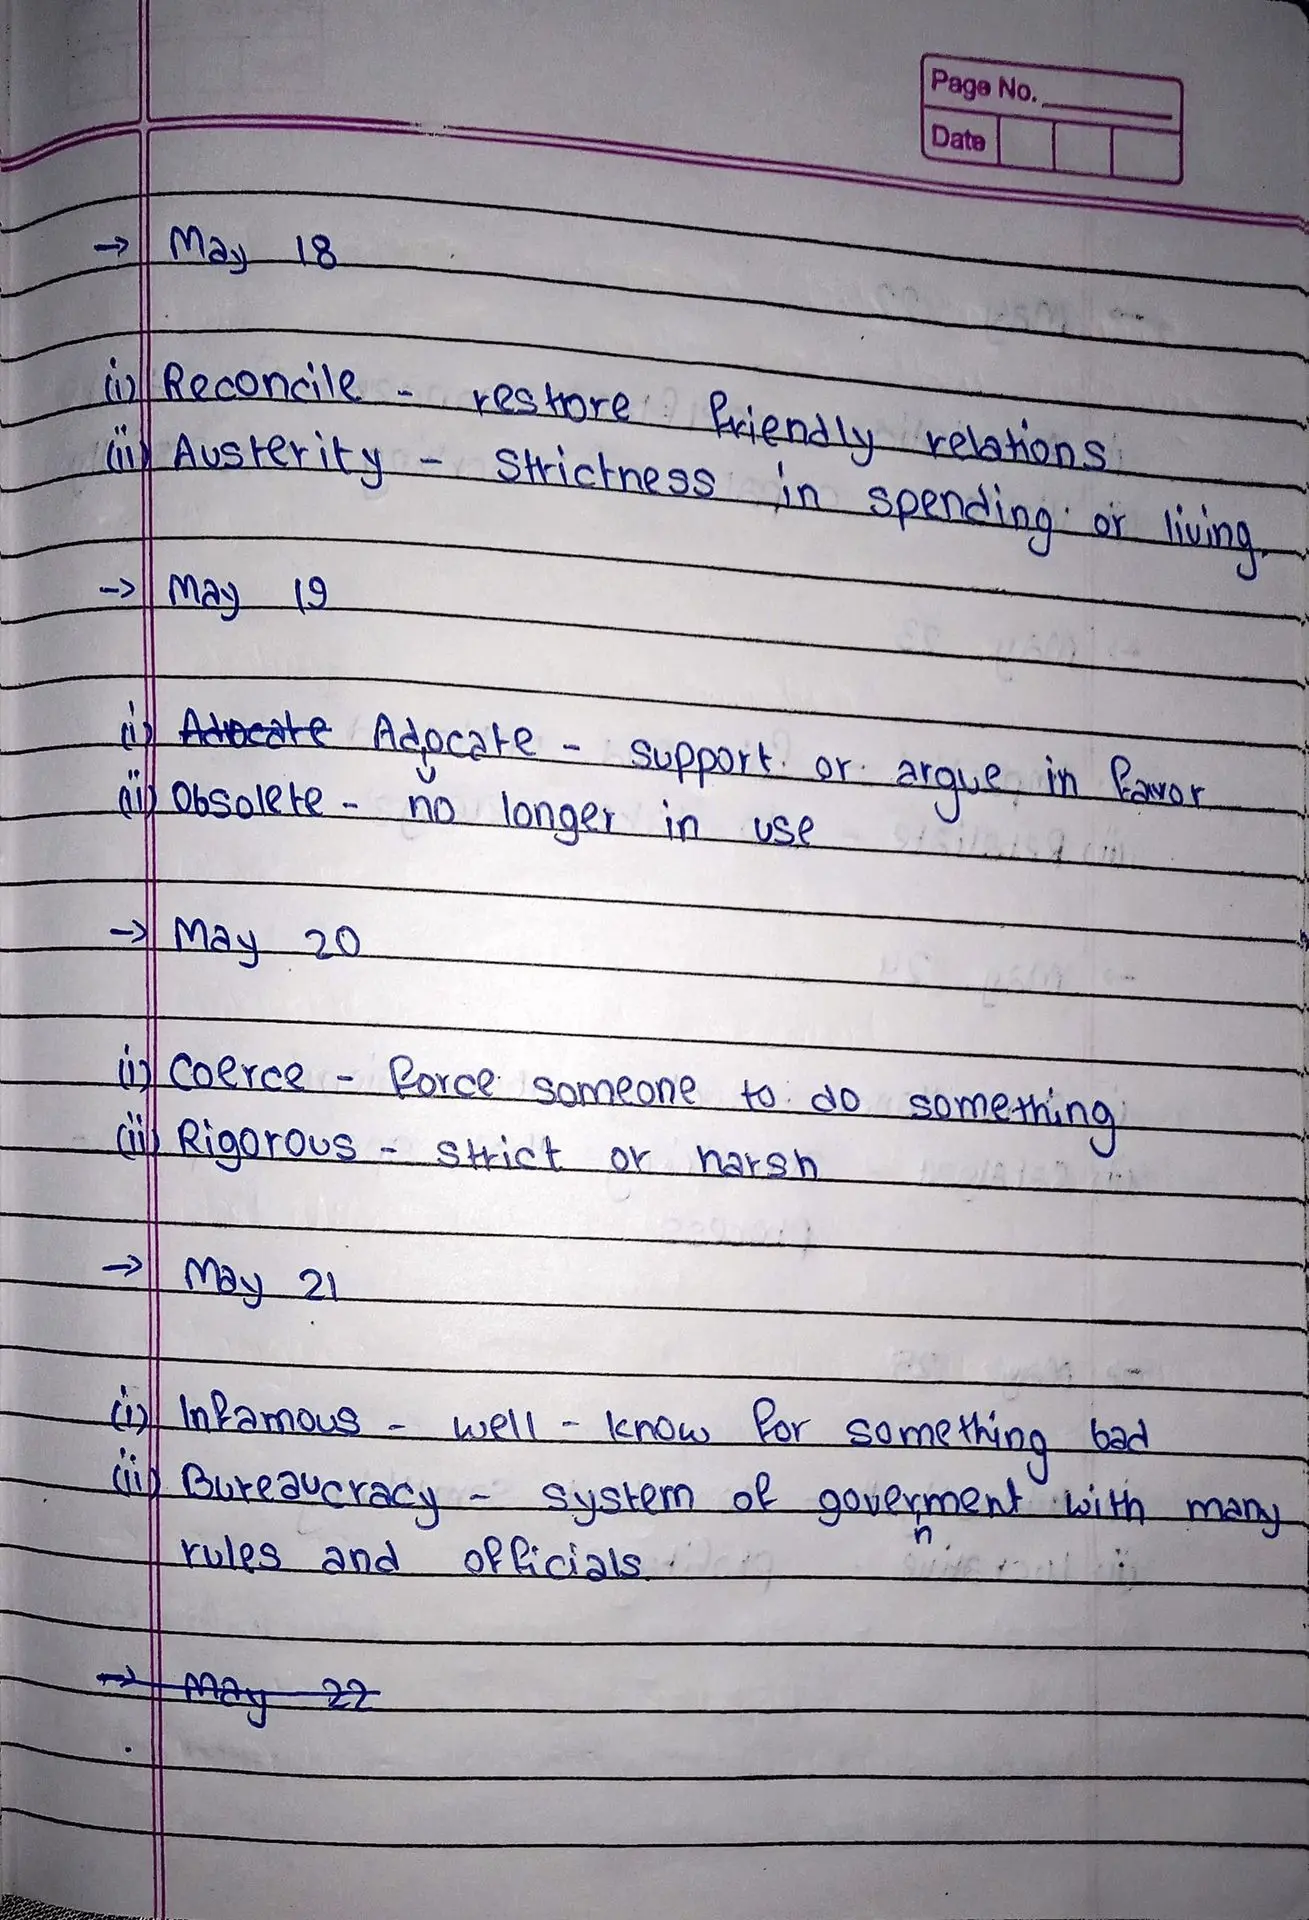 Page No.
Date
→ May 18
(i) Reconcile - restore friendly relations
(ii) Austerity - Strictness in spending or living.
→ May 19
(i) Advocate Advocate - support or argue in favor
(ii) Obsolete - no longer in use
→ May 20
(i) Coerce - force someone to do something
(ii) Rigorous - strict or harsh
→ May 21
(i) Infamous - well - know for something bad
(ii) Bureaucracy - system of government with many
rules and officials
→ May 22